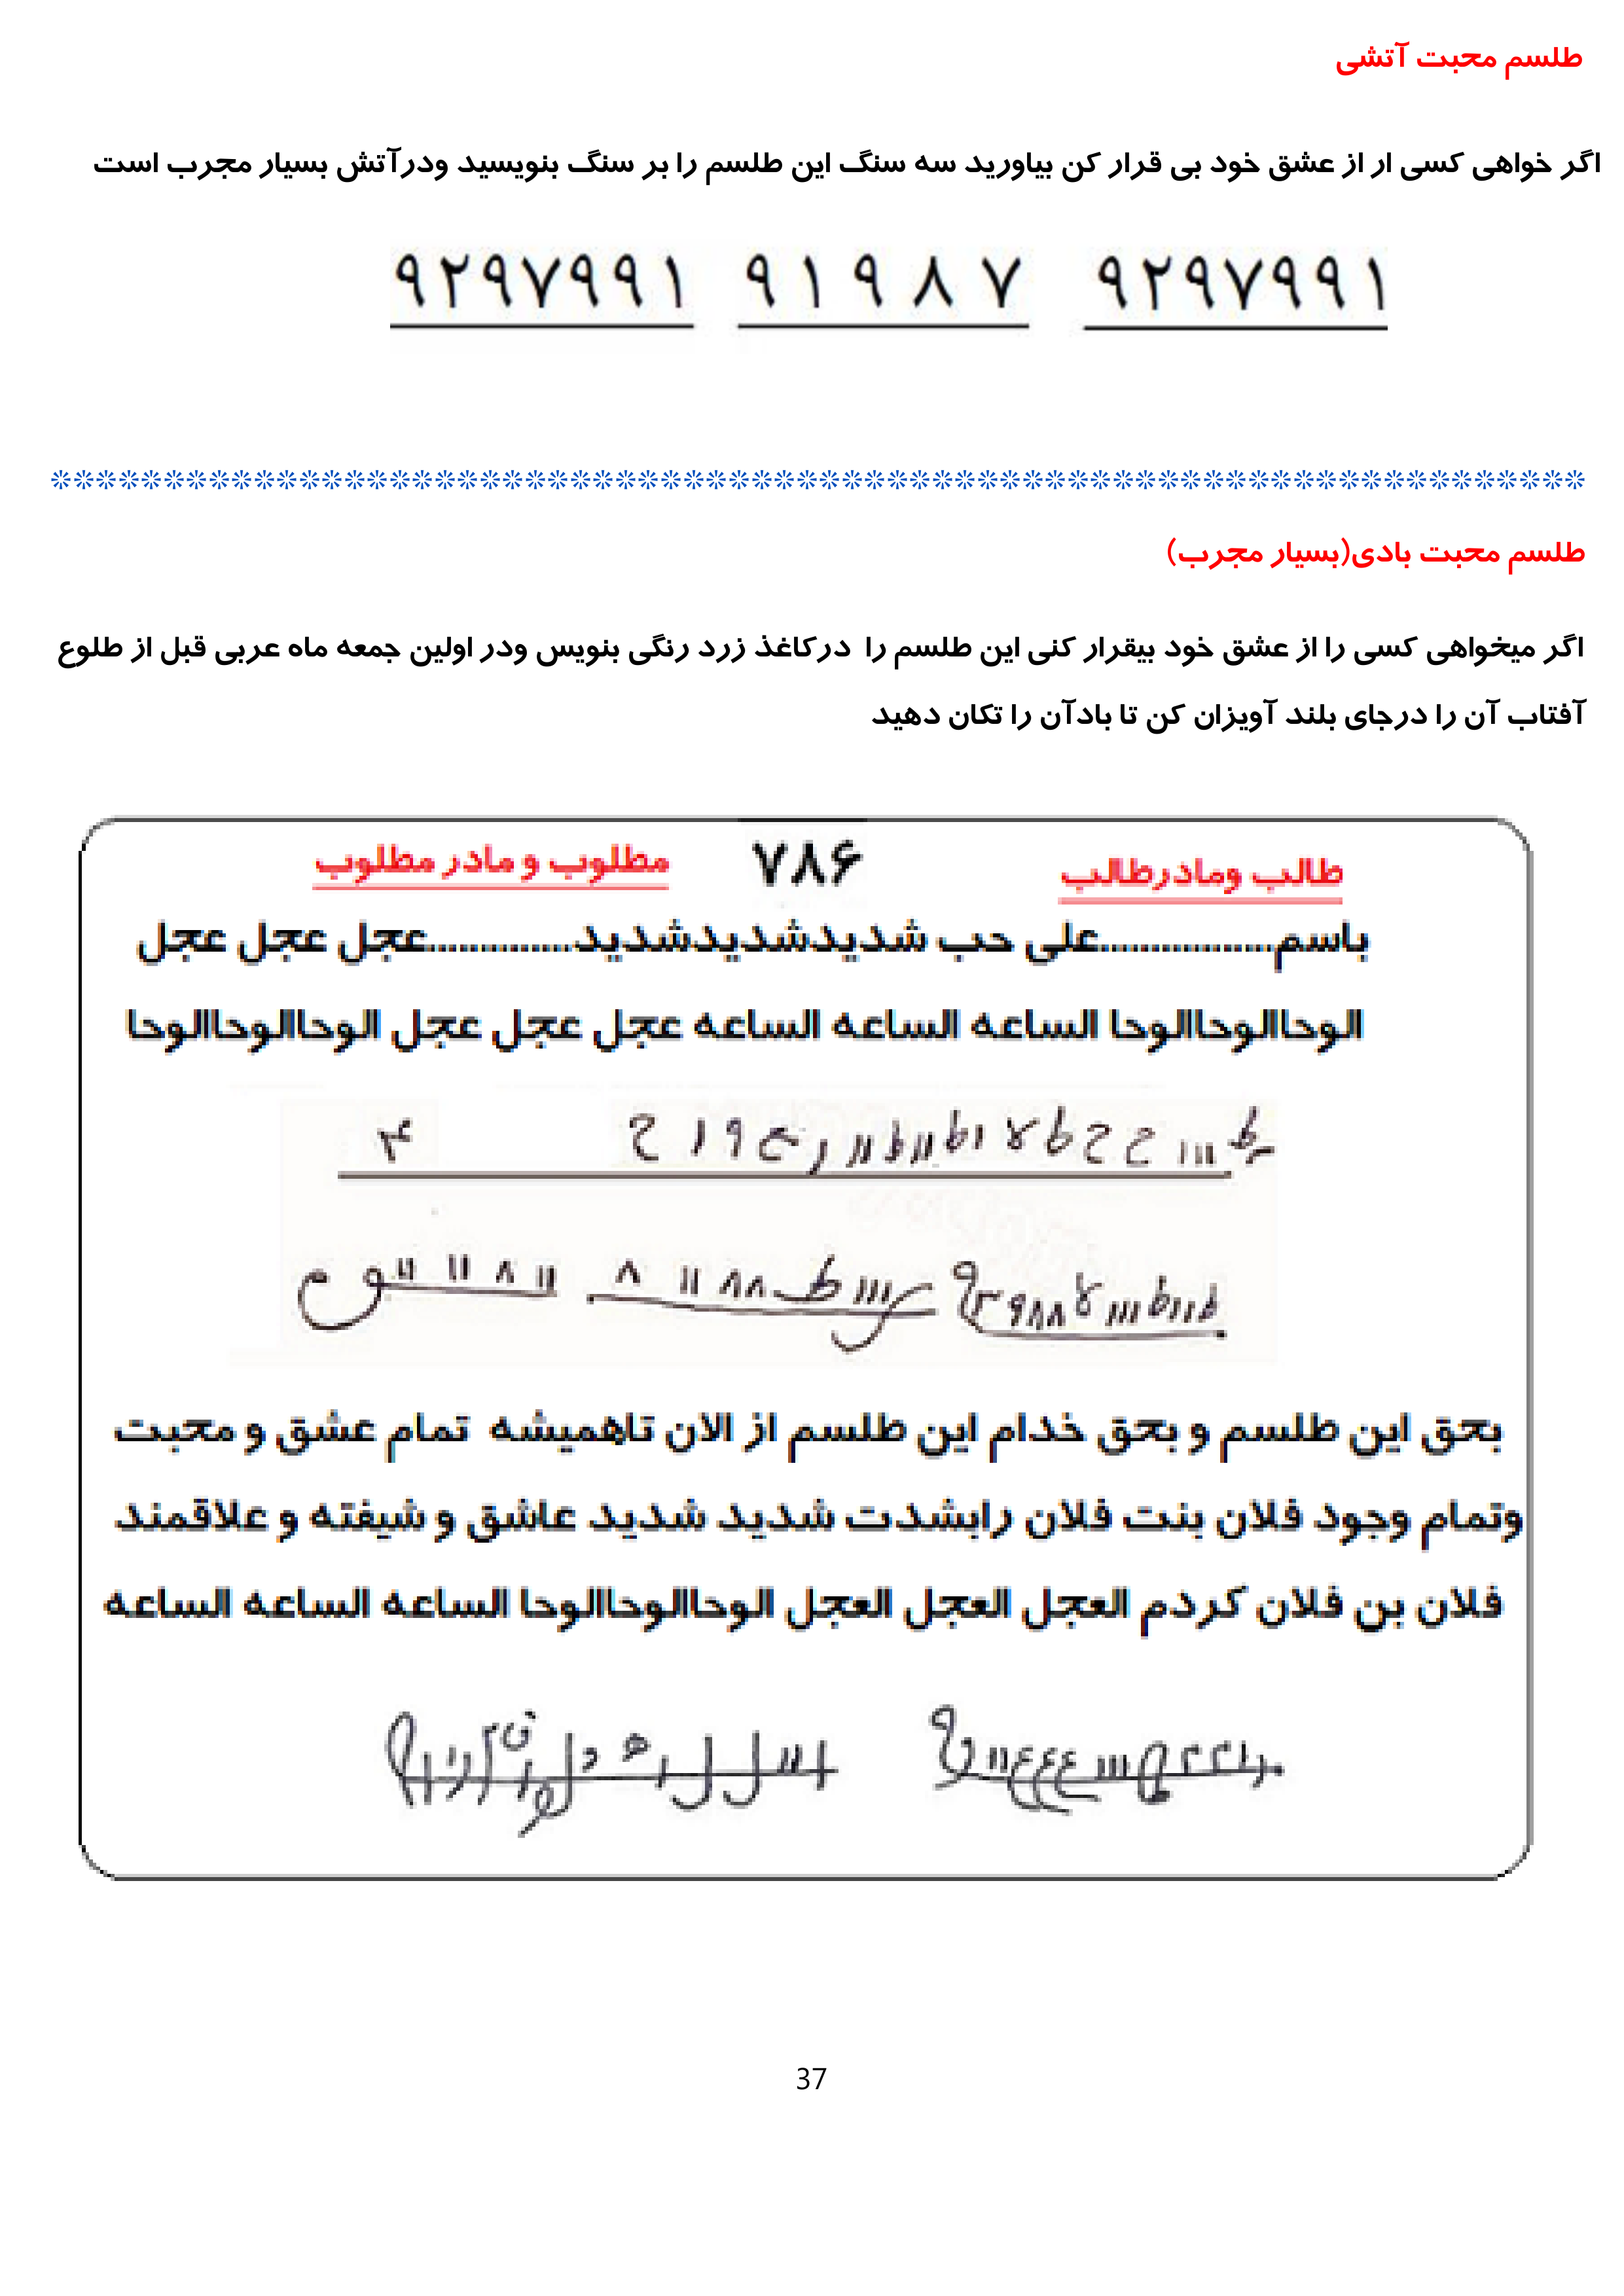 طلسم محبت آتشی
اگر خواهی کسی ار از عشق خود بی قرار کن بیاورید سه سنگ این طلسم را بر سنگ بنویسید ودرآتش بسیار مجرب است
۹۲۹۷۹۹۱ ۹۱۹۸۷ ۹۲۹۷۹۹۱
طلسم محبت بادی(بسیار مجرب)
اگر میخواهی کسی را از عشق خود بیقرار کنی این طلسم را درکاغذ زرد رنگی بنویس ودر اولین جمعه ماه عربی قبل از طلوع
آفتاب آن را درجای بلند آویزان کن تا بادآن را تکان دهید
طالب ومادرطالب ۷۸۶ مطلوب و مادر مطلوب
باسم.................علی حب شدیدشدیدشدید..............عجل عجل عجل
الوحاالوحاالوحا الساعه الساعه الساعه عجل عجل عجل الوحاالوحاالوحا
بحق این طلسم و بحق خدام این طلسم از الان تاهمیشه تمام عشق و محبت
وتمام وجود فلان بنت فلان رابشدت شدید شدید عاشق و شیفته و علاقمند
فلان بن فلان کردم العجل العجل العجل الوحاالوحاالوحا الساعه الساعه الساعه
37